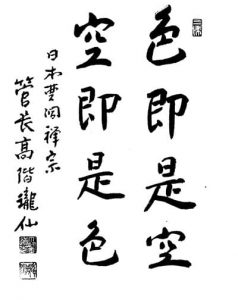 色即是空
空即是色
日本曹洞禅宗
管长高階瓏仙